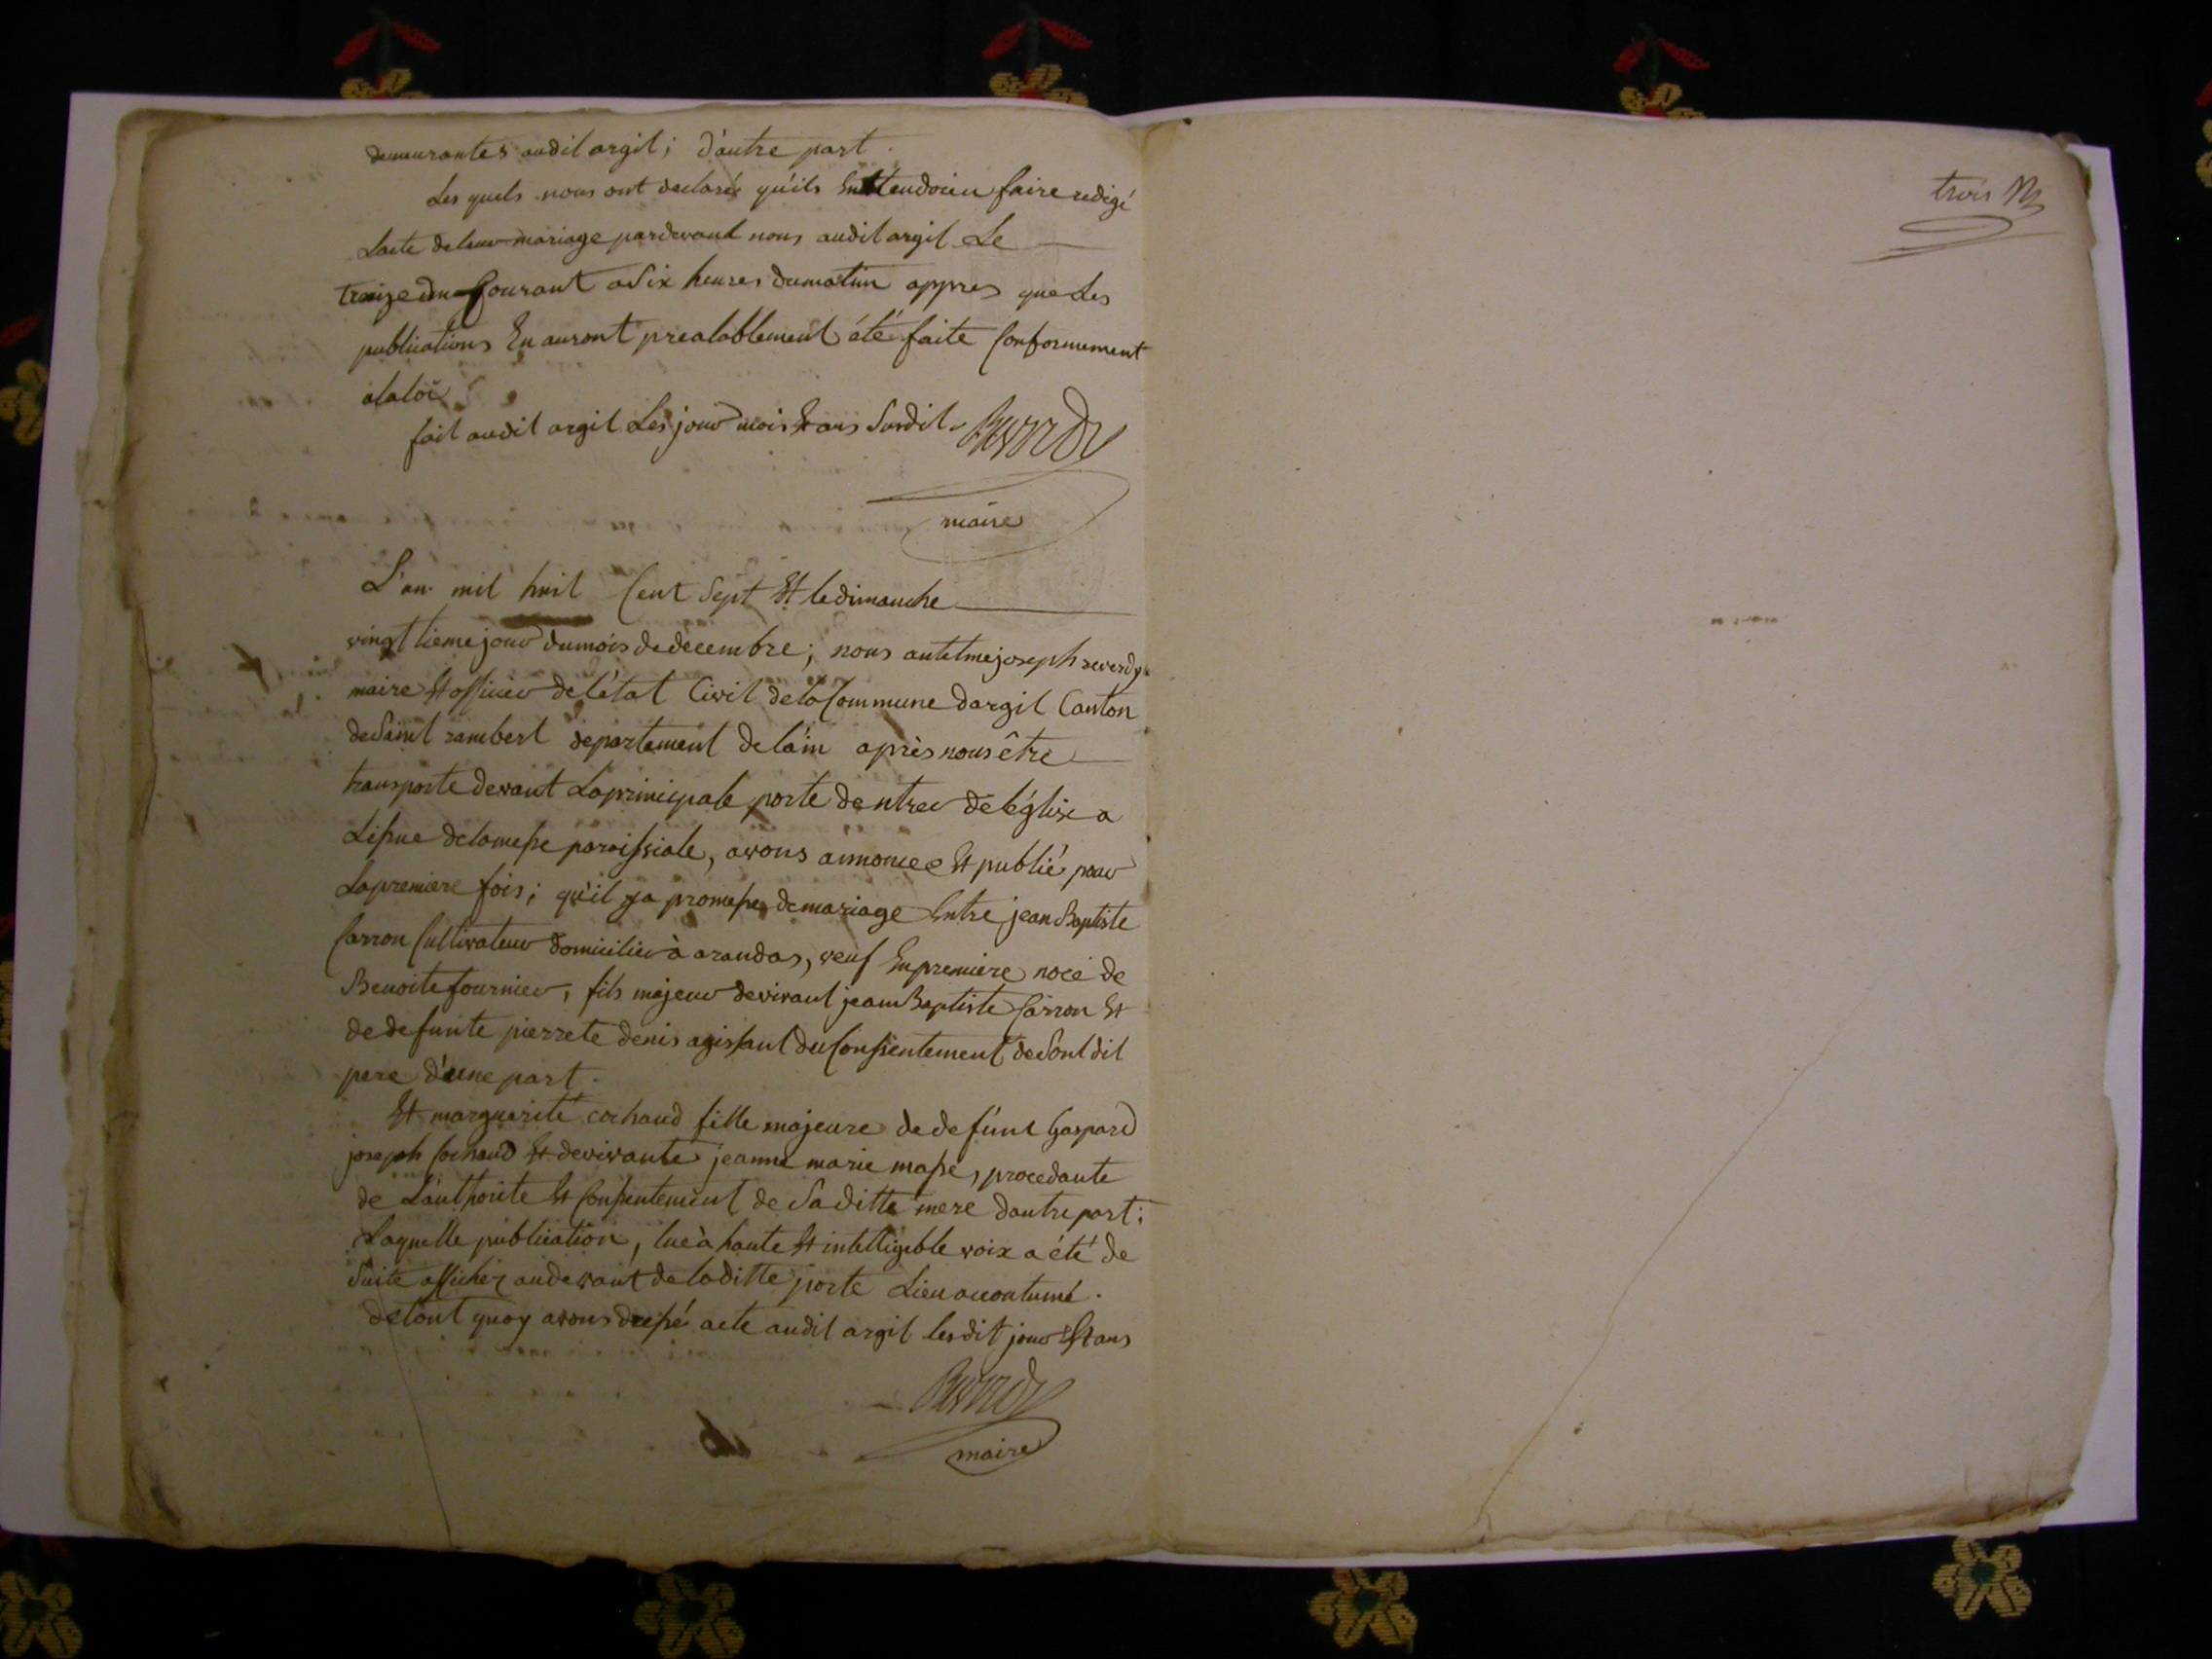 demeurantes audit argil; d'autre part.
Les quels nous ont declaré qu'ils Entendoien faire redigé
Lacte de leur mariage pardevant nous audit argil Le
treize du Courant a Six heures du matin appres que Les
publications En auront prealablement été faite Conformement
a la loi
fait audit argil Les jour mois & ans Susdit. Reverdy
maire
L'an mil huit Cent Sept Et le dimanche
vingtieme jour du mois de decembre; nous antelme joseph reverdy
maire Et officier de l'état Civil de la Commune dargil Canton
de Saint rambert departement de l'ain après nous être
transporte devant La principale porte dentree de l'église a
Lissue de la messe paroissiale, avons annoncee Et publié pour
La premiere fois; qu'il ya promesse de mariage Entre jean Baptiste
Carron Cultivateur domicilier à arandas, veuf En premiere noce de
Benoite fournier, fils majeur de vivant jean Baptiste Carron Et
de defunte pierrete denis agissant du Consientement de Sont dit
pere d'une part.
Et marguerite cochaud fille majeure de defunt Gaspard
joseph Cochaud Et de vivante jeanne marie masse, procedante
de L'authorite Et Consentement de Sa ditte mere dautre part;
Laquelle publication, lue à haute Et intelligeble voix a été de
Suite afficher au devant de la ditte porte Lieu accoutumé.
de tout quoy avons dressé acte audit argil lesdit jour Et ans
Reverdy
maire
trois